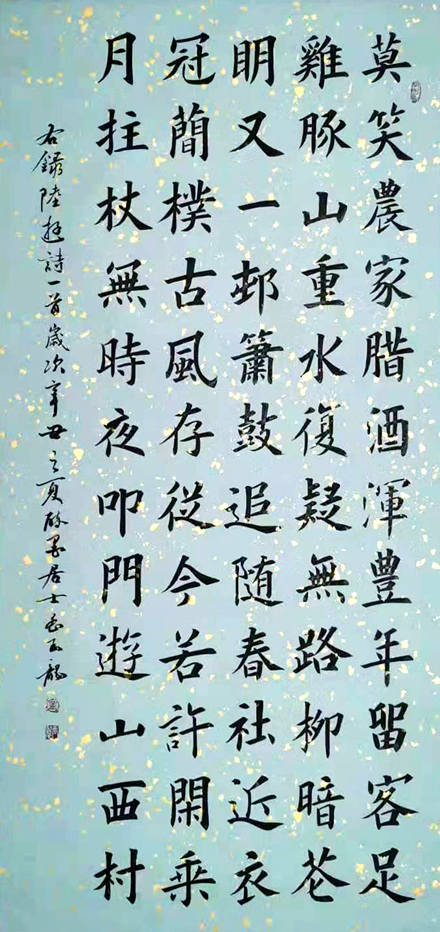 莫笑農家腊酒渾豊年留客足
雞豚山重水復疑無路柳暗花
明又一邨簫鼓追随春社近衣
冠簡樸古風存従今若許閑乗
月拄杖無時夜叩門遊山西村
右録陸游詩一首歲次辛丑之夏